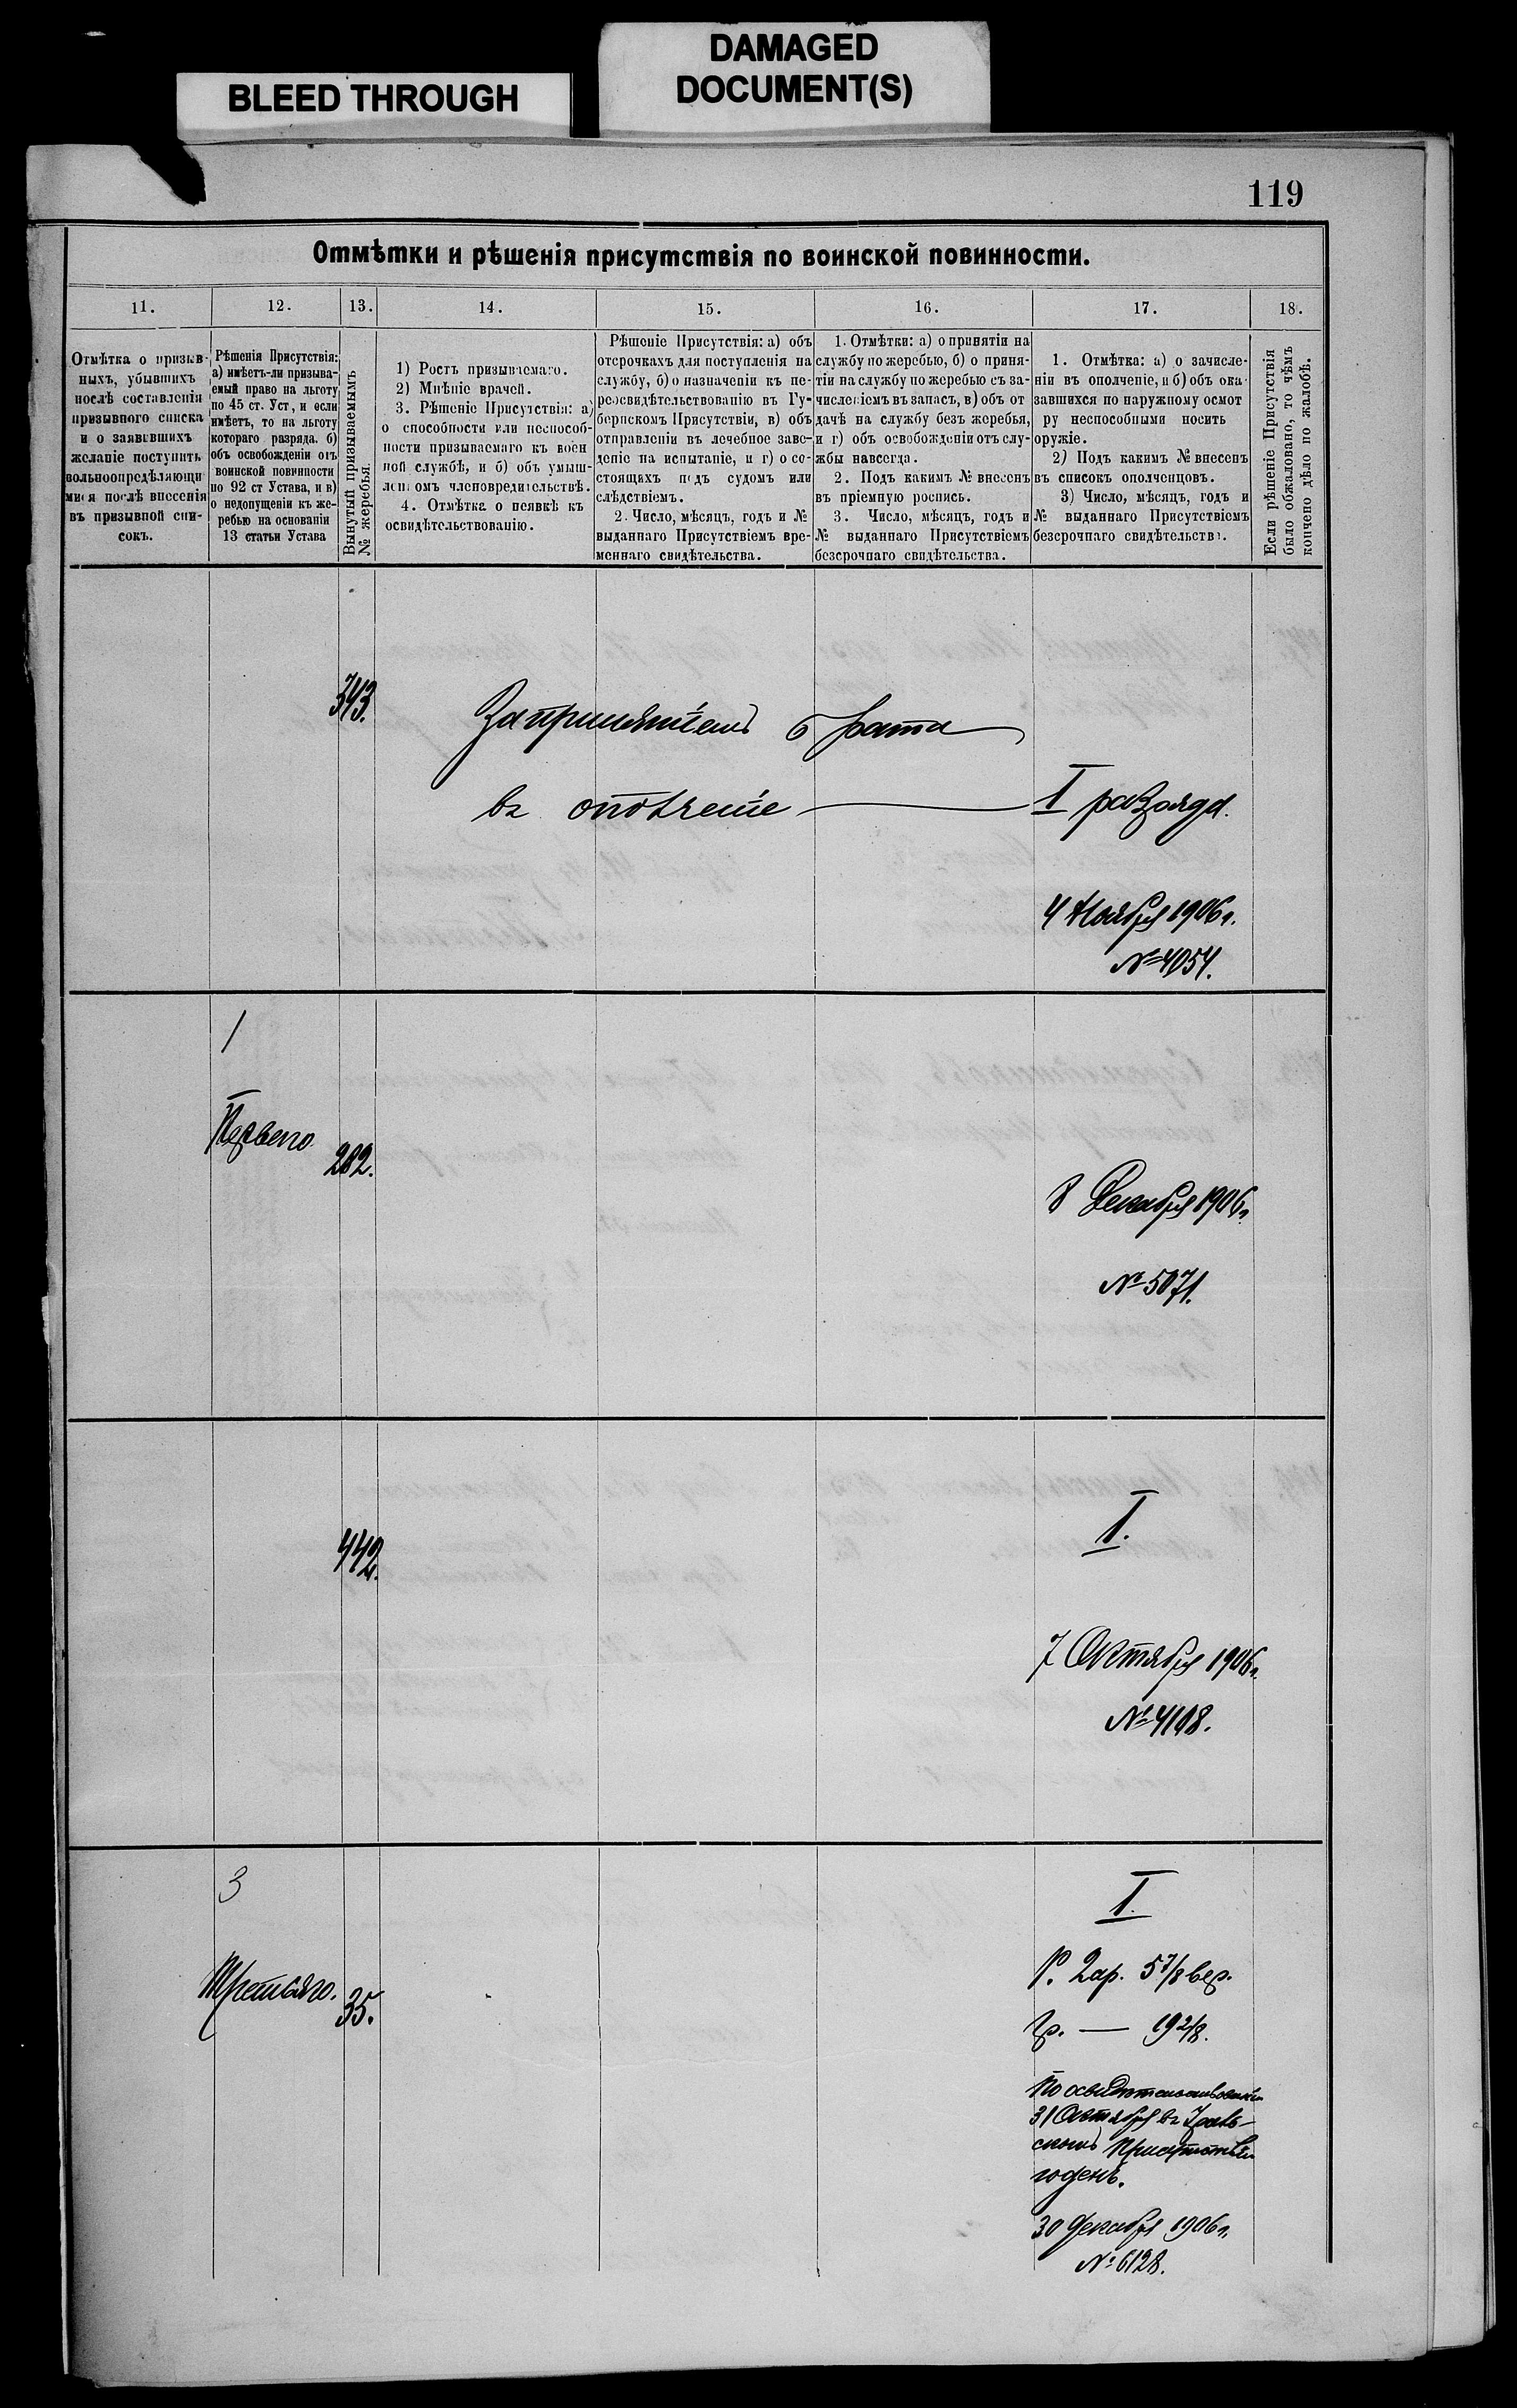 BLEED THROUGH
DAMAGED
DOCUMENT(S)
119
Отмѣтки и рѣшенія присутствія по воинской повинности.
11.
12.
13.
14.
15.
16.
17.
18.
Отмѣтка о призыв-
ныхъ, убывшихъ
послѣ составленія
призывного списка
и о заявившихъ
желаніе поступить
вольноопредѣляющи
мися послѣ внесенія
въ призывной спи-
сокъ.
Рѣшенія Присутствія:
а) имѣетъ-ли призыва-
емый право на льготу
по 45 ст. Уст, и если
имѣетъ, то на льготу
котораго разряда. б)
объ освобожденіи отъ
воинской повинности
по 92 ст Устава, и в)
о недопущеніи къ же-
ребью на основаніи
13 статьи Устава
Вынутый призываемымъ
№ жеребья.
1) Ростъ призываемаго.
2) Мнѣніе врачей.
3. Рѣшеніе Присутствія: а)
о способности или неспособ-
ности призываемаго къ воен
ной службѣ, и б) объ умыш-
леномъ членовредительствѣ.
4. Отмѣтка о неявкѣ къ
освидѣтельствованію.
Рѣшеніе Присутствія: а) объ
отсрочкахъ для поступленія на
службу, б) о назначеніи къ пе-
реосвидѣтельствованію въ Гу-
бернскомъ Присутствіи, в) объ
отправленіи въ лечебное заве-
деніе на испытаніе, и г) о со-
стоящихъ подъ судомъ или
слѣдствіемъ.
2. Число, мѣсяцъ, годъ и №
выданнаго Присутствіемъ вре-
меннаго свидѣтельства.
1. Отмѣтки: а) о принятіи на
службу по жеребью, б) о приня-
тіи на службу по жеребью съ за-
численіемъ въ запасъ, в) объ от
дачѣ на службу безъ жеребья,
и г) объ освобожденіи отъ слу-
жбы навсегда.
2. Подъ какимъ № внесенъ
въ пріемную роспись.
3. Число, мѣсяцъ, годъ и
№ выданнаго Присутствіемъ
безсрочнаго свидѣтельства.
1. Отмѣтка: а) о зачисле-
ніи въ ополченіе, и б) объ ока-
завшихся по наружному осмот
ру неспособными носить
оружіе.
2) Подъ какимъ № внесенъ
въ списокъ ополченцовъ.
3) Число, мѣсяцъ, годъ и
№ выданнаго Присутствіемъ
безсрочнаго свидѣтельства.
Если рѣшеніе Присутствія
было обжаловано, то чѣмъ
кончено дѣло по жалобѣ.
343.
За принятіемъ брата
въ ополченіе I разряда.
4 Ноября 1906 г.
№ 4054.
1
Перваго.
282.
8 Декабря 1906 г.
№ 5071.
442.
I.
7 Октября 1906 г.
№ 4198.
3
I.
Третьяго.
35.
Р. 2 ар. 5 7/8 вер.
Гр. — 19 2/8.
По освидѣтельствованіи
31 Октября въ
скомъ Присутствіи
годенъ.
30 Декабря 1906 г.
№ 6128.